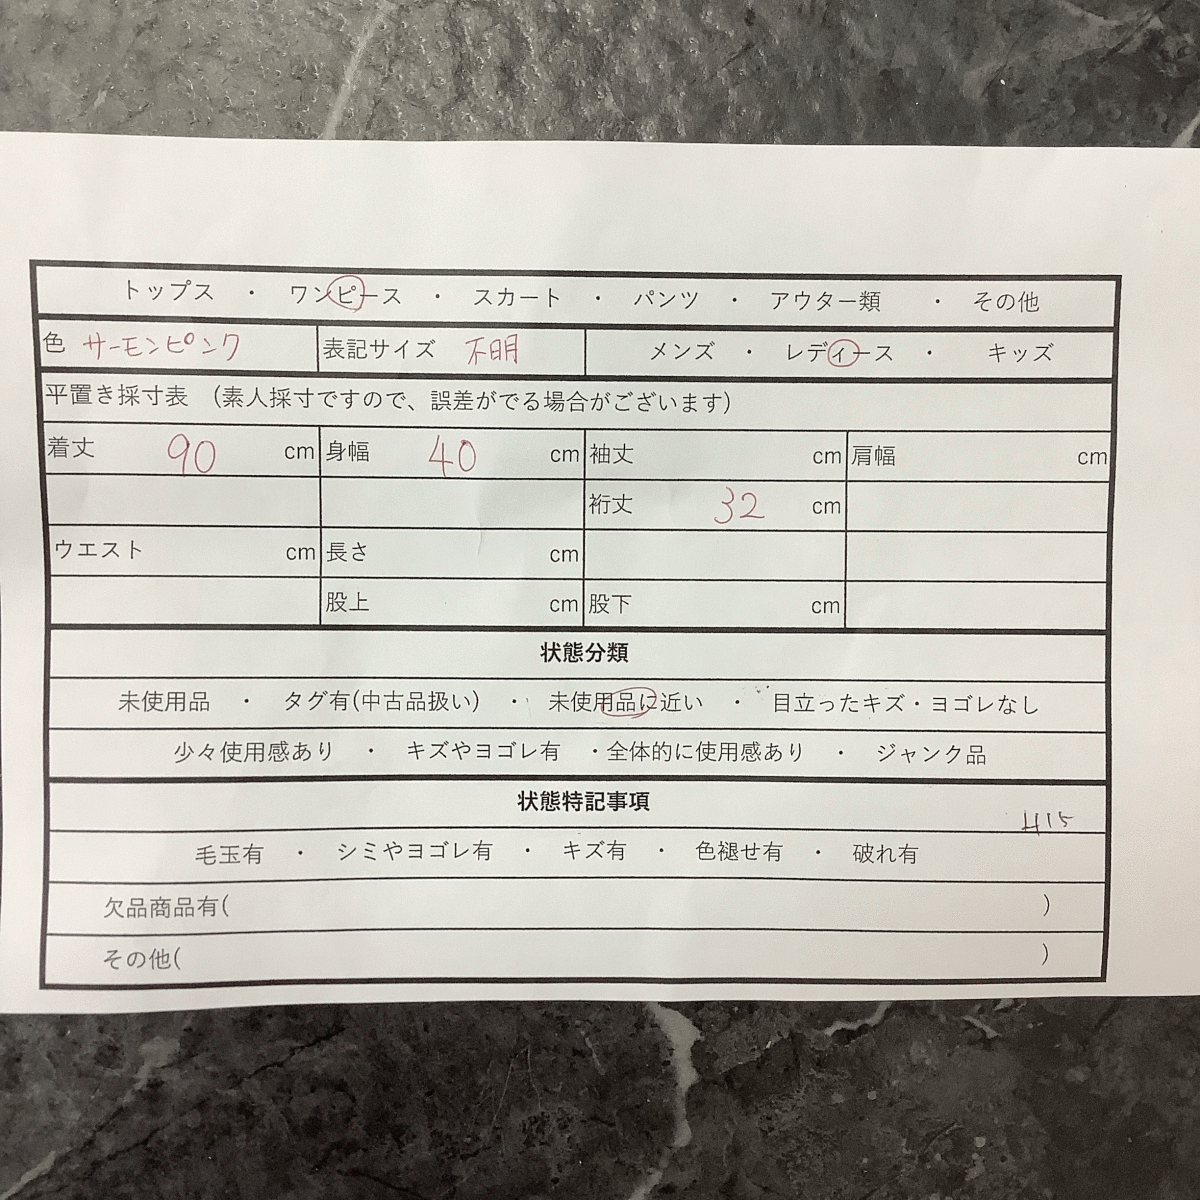 トップス ・ ワンピース ・ スカート ・ パンツ ・ アウター類 ・ その他
色 サーモンピンク 表記サイズ 不明 メンズ ・ レディース ・ キッズ
平置き採寸表 （素人採寸ですので、誤差がでる場合がございます）
着丈 90 cm 身幅 40 cm 袖丈 cm 肩幅 cm
裄丈 32 cm
ウエスト cm 長さ cm
股上 cm 股下 cm
状態分類
未使用品 ・ タグ有(中古品扱い) ・ 未使用品に近い ・ 目立ったキズ・ヨゴレなし
少々使用感あり ・ キズやヨゴレ有 ・全体的に使用感あり ・ ジャンク品
状態特記事項
H15
毛玉有 ・ シミやヨゴレ有 ・ キズ有 ・ 色褪せ有 ・ 破れ有
欠品商品有( )
その他( )